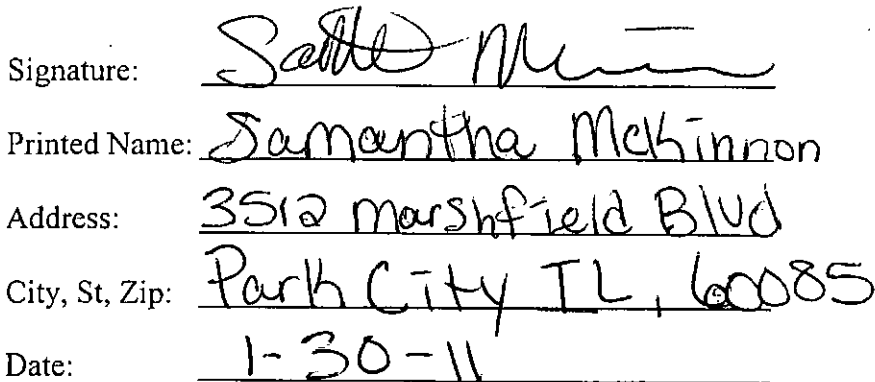 Signature:
Printed Name: Samantha McKinnon
Address: 3512 Marshfield Blvd
City, St, Zip: Park City IL, 60085
Date: 1-30-11